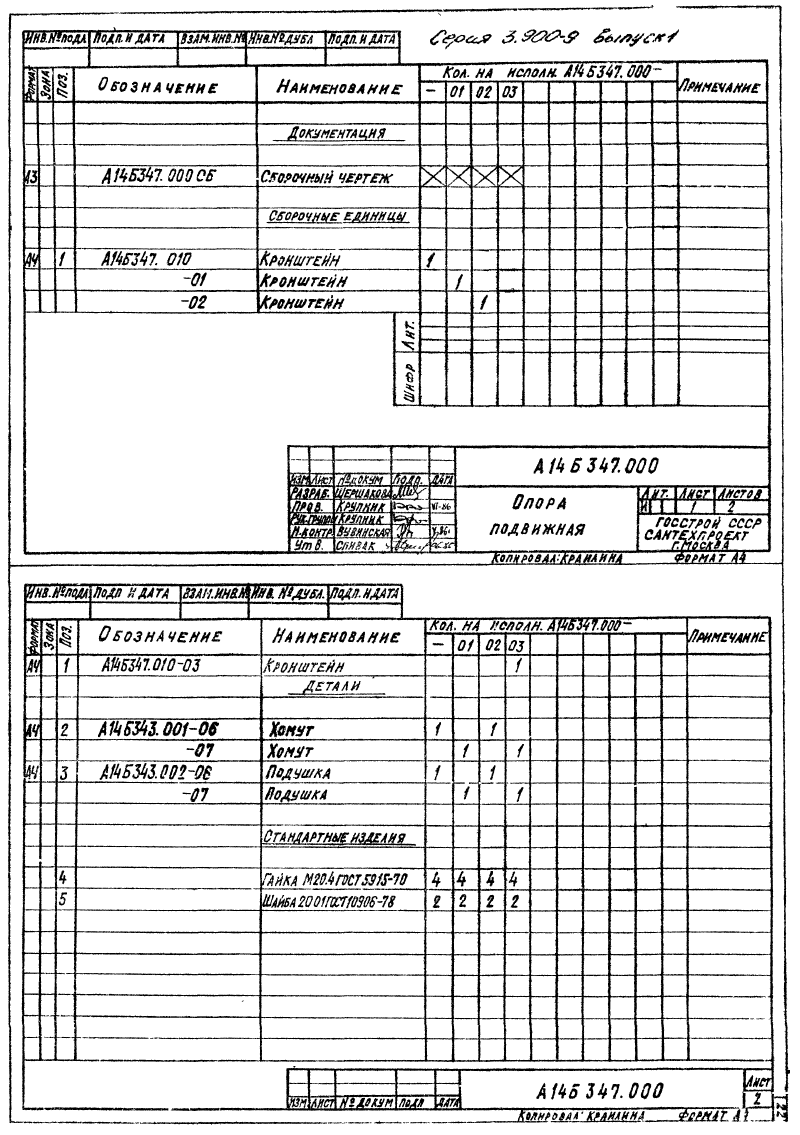 Серия 3.900-9 Выпуск 1
Инв.№подл Подп. и дата Взам.инв.№ Инв.№дубл Подп. и дата
Формат Зона Поз. Обозначение Наименование Кол. на исполн. А14Б347.000- Примечание
- 01 02 03
Документация
А3 А14Б347.000 СБ Сборочный чертеж
Сборочные единицы
А4 1 А14Б347. 010 Кронштейн 1
-01 Кронштейн 1
-02 Кронштейн 1
Лит.
Шифр
А14Б347.000
Изм Лист №докум Подп. Дата
Разраб. Шершакова
Пров. Крупник
Рук.групп Крупник
Н.контр. Вувинская
Утв. Спивак
Опора подвижная
Лит. Лист Листов
И 1 2
Госстрой СССР
Сантехпроект
г.Москва
Копировал: Крайлина Формат А4
Инв.№подл Подп и дата Взам.инв.№ Инв. № дубл. Подп. и дата
Формат Зона Поз. Обозначение Наименование Кол. на исполн. А14Б347.000- Примечание
- 01 02 03
А4 1 А14Б347.010-03 Кронштейн 1
Детали
А4 2 А14Б343.001-06 Хомут 1 1
-07 Хомут 1 1
А4 3 А14Б343.002-06 Подушка 1 1
-07 Подушка 1 1
Стандартные изделия
4 Гайка М20.4 ГОСТ 5915-70 4 4 4 4
5 Шайба 20 01 ГОСТ 10906-78 2 2 2 2
Изм Лист № докум Подп Дата
А14Б 347.000
Лист
2
Копировал: Формат